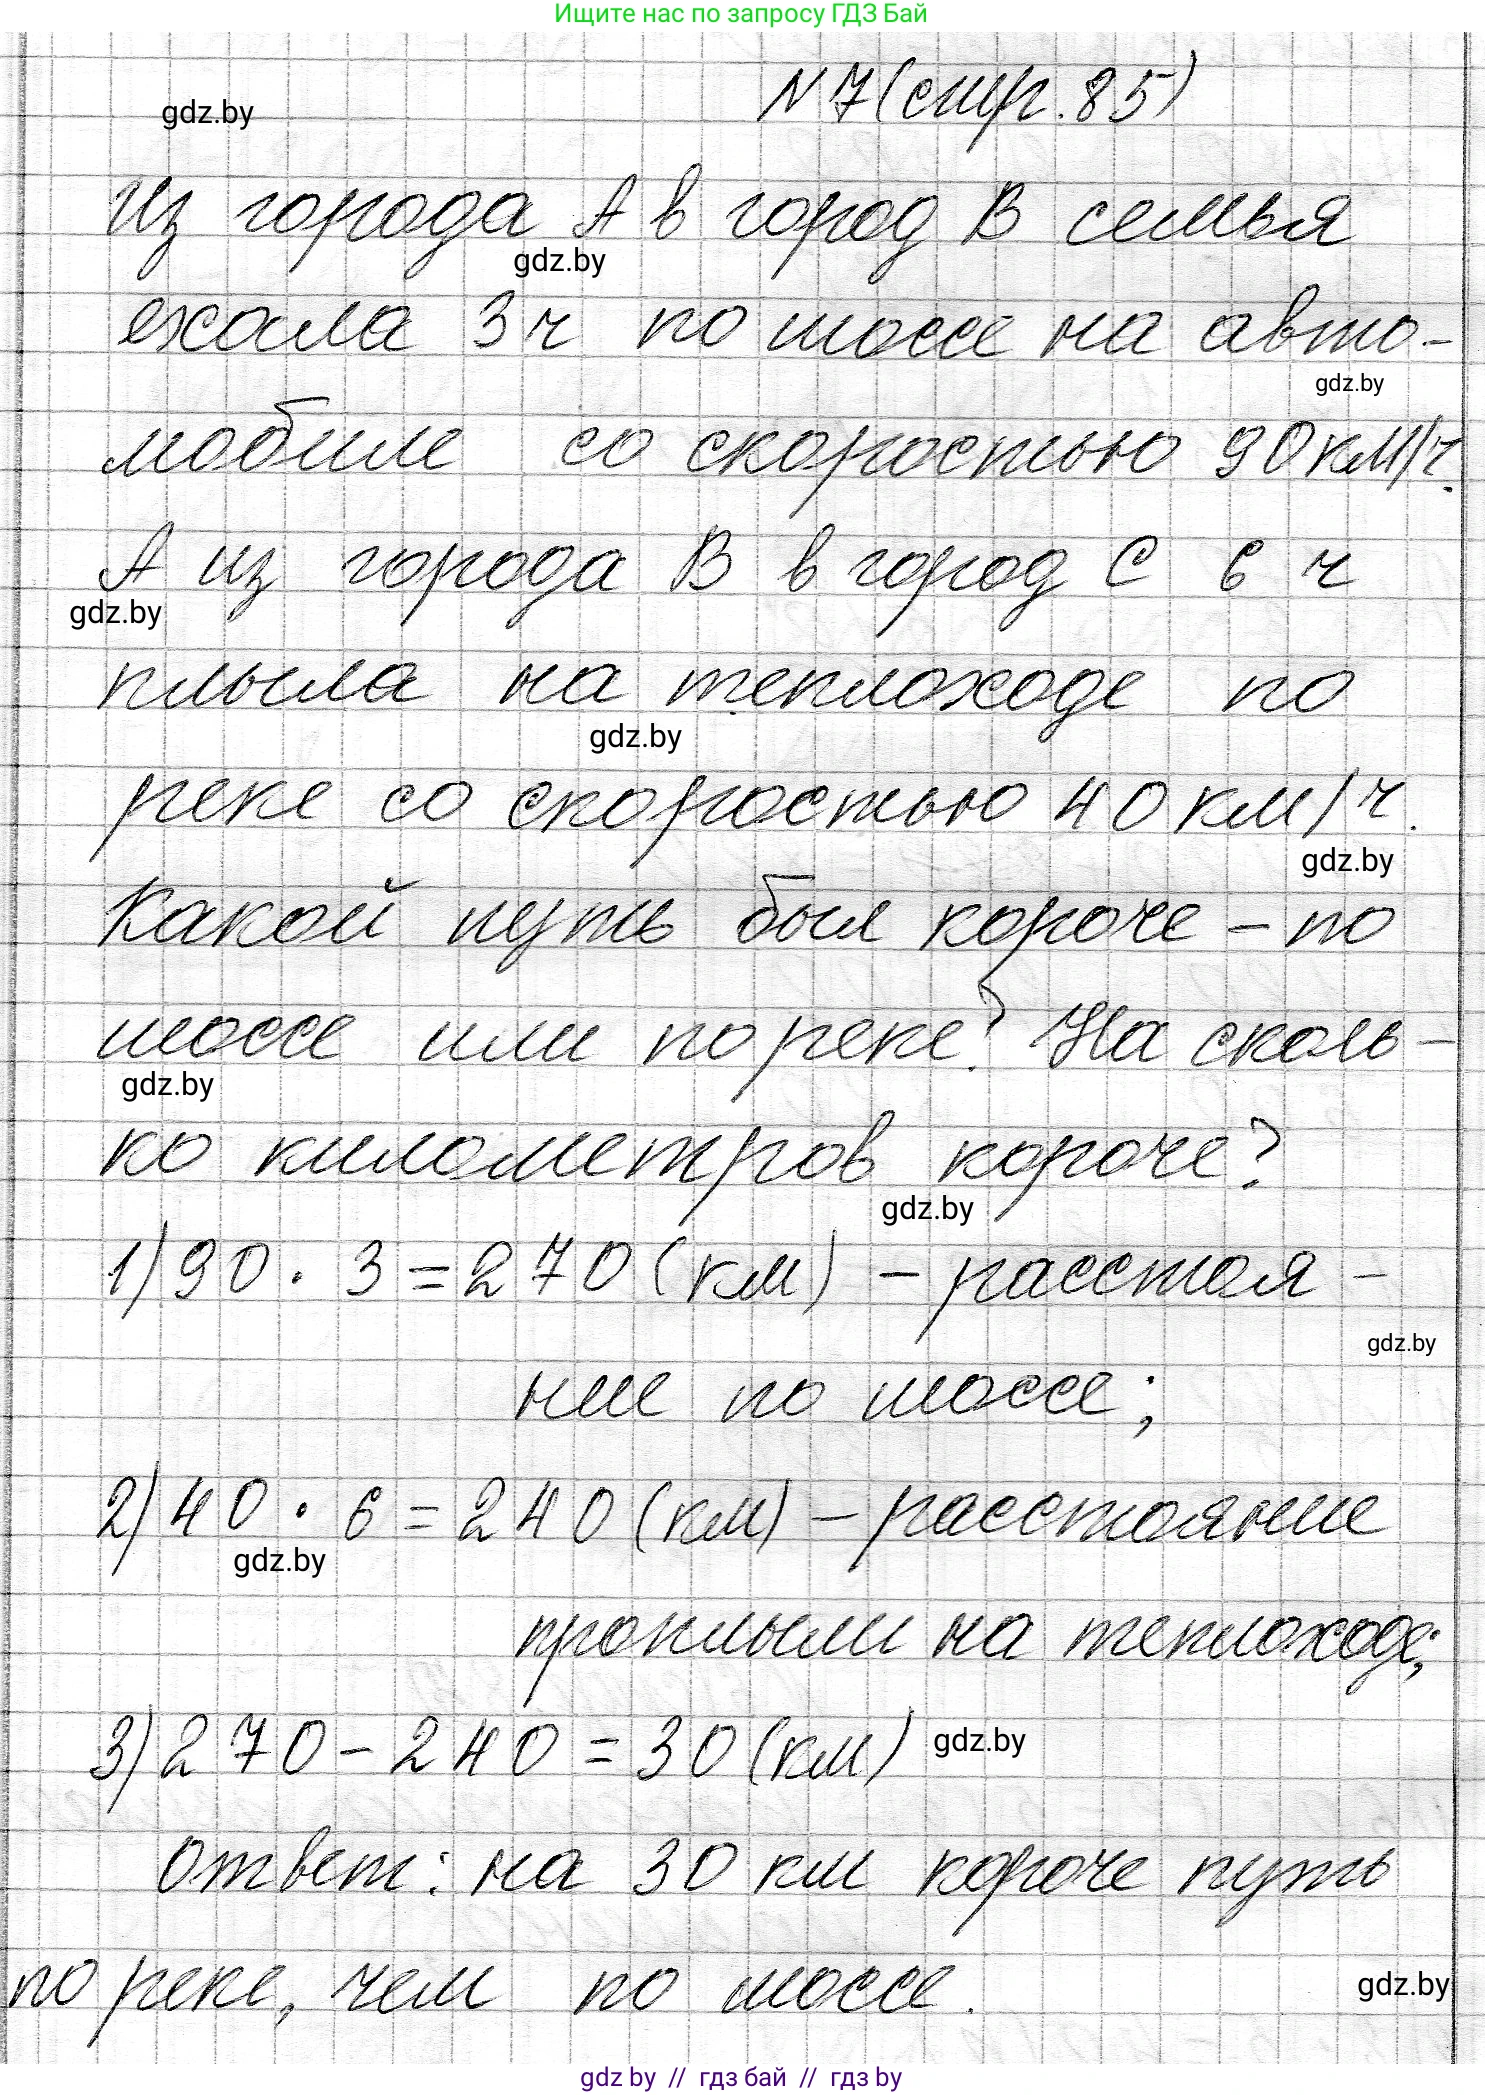 Ищите нас по запросу ГДЗ Бай
N 7 (стр. 85)
gdz.by
Из города А в город В семья
gdz.by
ехала 3 ч по шоссе на авто-
gdz.by
мобиле со скоростью 90 км/ч.
А из города В в город С 6 ч
gdz.by
плыла на теплоходе по
gdz.by
реке со скоростью 40 км/ч.
gdz.by
Какой путь был короче – по
шоссе или по реке? На сколь-
gdz.by
ко километров короче?
gdz.by
1) 90 · 3 = 270 (км) – расстоя-
gdz.by
ние по шоссе;
2) 40 · 6 = 240 (км) – расстояние
gdz.by
проплыли на теплоходе;
3) 270 – 240 = 30 (км)
gdz.by
Ответ: на 30 км короче путь
по реке, чем по шоссе.
gdz.by
gdz.by // гдз бай // гдз by